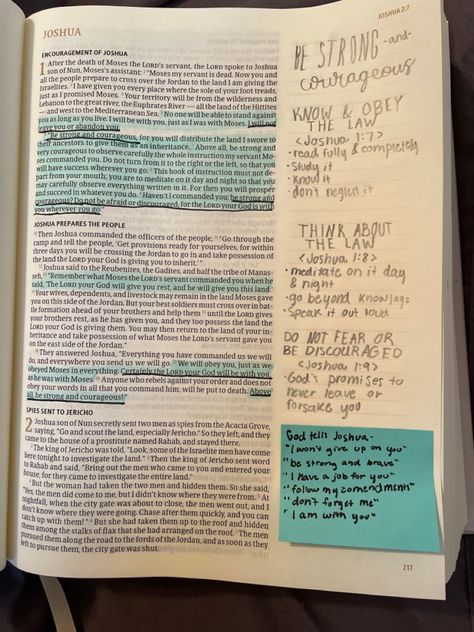 JOSHUA 2:7
JOSHUA
ENCOURAGEMENT OF JOSHUA
1 After the death of Moses the LORD's servant, the LORD spoke to Joshua
son of Nun, Moses's assistant: 2 "Moses my servant is dead. Now you and
all the people prepare to cross over the Jordan to the land I am giving the
Israelites. 3 I have given you every place where the sole of your foot treads,
just as I promised Moses. 4 Your territory will be from the wilderness and
Lebanon to the great river, the Euphrates River — all the land of the Hittites
— and west to the Mediterranean Sea. 5 No one will be able to stand against
you as long as you live. I will be with you, just as I was with Moses. I will not
leave you or abandon you.
6 "Be strong and courageous, for you will distribute the land I swore to
their ancestors to give them as an inheritance. 7 Above all, be strong and
very courageous to observe carefully the whole instruction my servant Mo-
ses commanded you. Do not turn from it to the right or the left, so that you
will have success wherever you go. 8 This book of instruction must not de-
part from your mouth; you are to meditate on it day and night so that you
may carefully observe everything written in it. For then you will prosper
and succeed in whatever you do. 9 Haven't I commanded you: be strong and
courageous? Do not be afraid or discouraged, for the LORD your God is with
you wherever you go."
JOSHUA PREPARES THE PEOPLE
10 Then Joshua commanded the officers of the people, 11 "Go through the
camp and tell the people, 'Get provisions ready for yourselves, for within
three days you will be crossing the Jordan to go in and take possession of
the land the LORD your God is giving you to inherit.'"
12 Joshua said to the Reubenites, the Gadites, and half the tribe of Manas-
seh, 13 "Remember what Moses the LORD's servant commanded you when he
said, 'The LORD your God will give you rest, and he will give you this land.'
14 Your wives, dependents, and livestock may remain in the land Moses gave
you on this side of the Jordan. But your best soldiers must cross over in bat-
tle formation ahead of your brothers and help them 15 until the LORD gives
your brothers rest, as he has given you, and they too possess the land the
LORD your God is giving them. You may then return to the land of your in-
heritance and take possession of what Moses the LORD's servant gave you
on the east side of the Jordan."
16 They answered Joshua, "Everything you have commanded us we will
do, and everywhere you send us we will go. 17 We will obey you, just as we
obeyed Moses in everything. Certainly the LORD your God will be with you,
as he was with Moses. 18 Anyone who rebels against your order and does not
obey your words in all that you command him, will be put to death. Above
all, be strong and courageous!"
SPIES SENT TO JERICHO
2 Joshua son of Nun secretly sent two men as spies from the Acacia Grove,
saying, "Go and scout the land, especially Jericho." So they left, and they
came to the house of a prostitute named Rahab, and stayed there.
2 The king of Jericho was told, "Look, some of the Israelite men have come
here tonight to investigate the land." 3 Then the king of Jericho sent word
to Rahab and said, "Bring out the men who came to you and entered your
house, for they came to investigate the entire land."
4 But the woman had taken the two men and hidden them. So she said,
"Yes, the men did come to me, but I didn't know where they were from. 5 At
nightfall, when the city gate was about to close, the men went out, and I
don't know where they were going. Chase after them quickly, and you can
catch up with them!" 6 But she had taken them up to the roof and hidden
them among the stalks of flax that she had arranged on the roof. 7 The men
pursued them along the road to the fords of the Jordan, and as soon as they
left to pursue them, the city gate was shut.
BE STRONG -and-
courageous
KNOW & OBEY
THE LAW
<Joshua 1:7>
• read fully & completely
• study it
• know it
• don't neglect it
THINK ABOUT
THE LAW
<Joshua 1:8>
• meditate on it day
& night
• go beyond knowlage
• speak it out loud
DO NOT FEAR OR
BE DISCOURAGED
<Joshua 1:9>
• God's promises to
never leave or
forsake you
God tells Joshua-
"I won't give up on you"
"be strong and brave"
"I have a job for you"
"follow my commendments"
"don't forget me"
"I am with you"
217